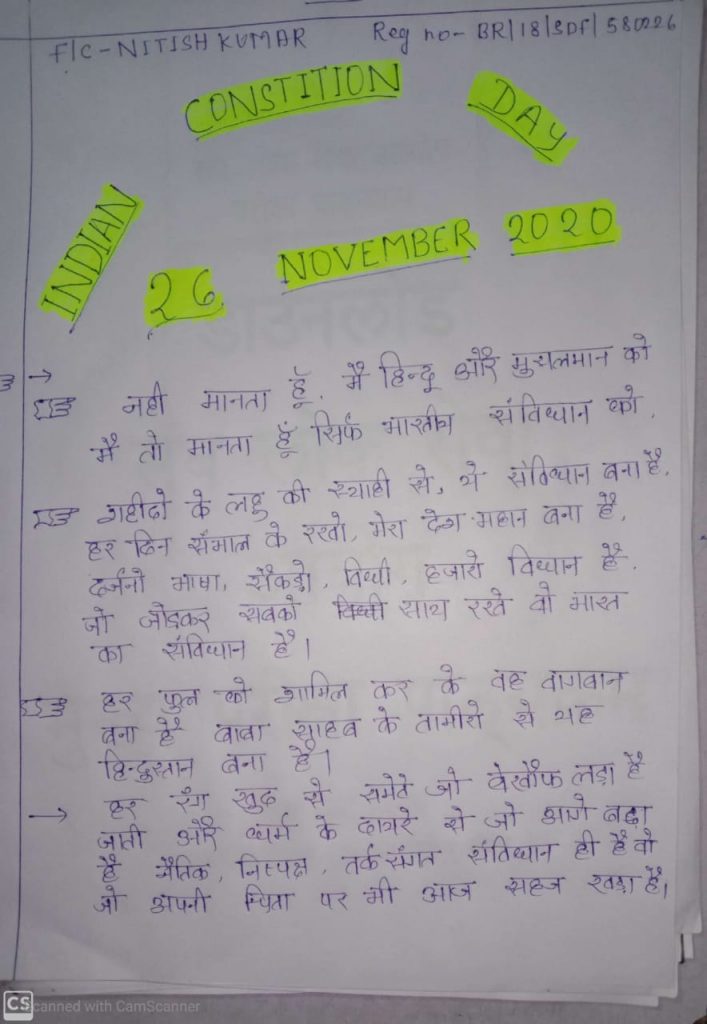 F/C - NITISH KUMAR Reg no- BR/18/SDF/580226
CONSTITION DAY
INDIAN
26 NOVEMBER 2020
→
नही मानता हूँ. मै हिन्दू और मुसलमान को
मै तो मानता हूँ सिर्फ भारतीय संविधान को.
शहीदो के लहु की स्याही से, ये संविधान बना है.
हर दिन सँभाल के रखो, मेरा देश महान बना है.
दर्जनो भाषा, सैकड़ो, विधी, हजारो विधान है.
जो जोड़कर सबको साथ रखे वो भारत
का संविधान है।
हर फुल को शामिल कर के वह बागवान
बना है बाबा साहब के तामीरो से यह
हिन्दुस्तान बना है।
→ हर रंग खुद से समेटे जो बेखौफ लड़ा है
जाती और धर्म के दायरे से जो आगे बढ़ा
है नैतिक, निष्पक्ष, तर्क संगत संविधान ही है वो
जो अपनी चिता पर भी आज सहज खड़ा है।
CS Scanned with CamScanner